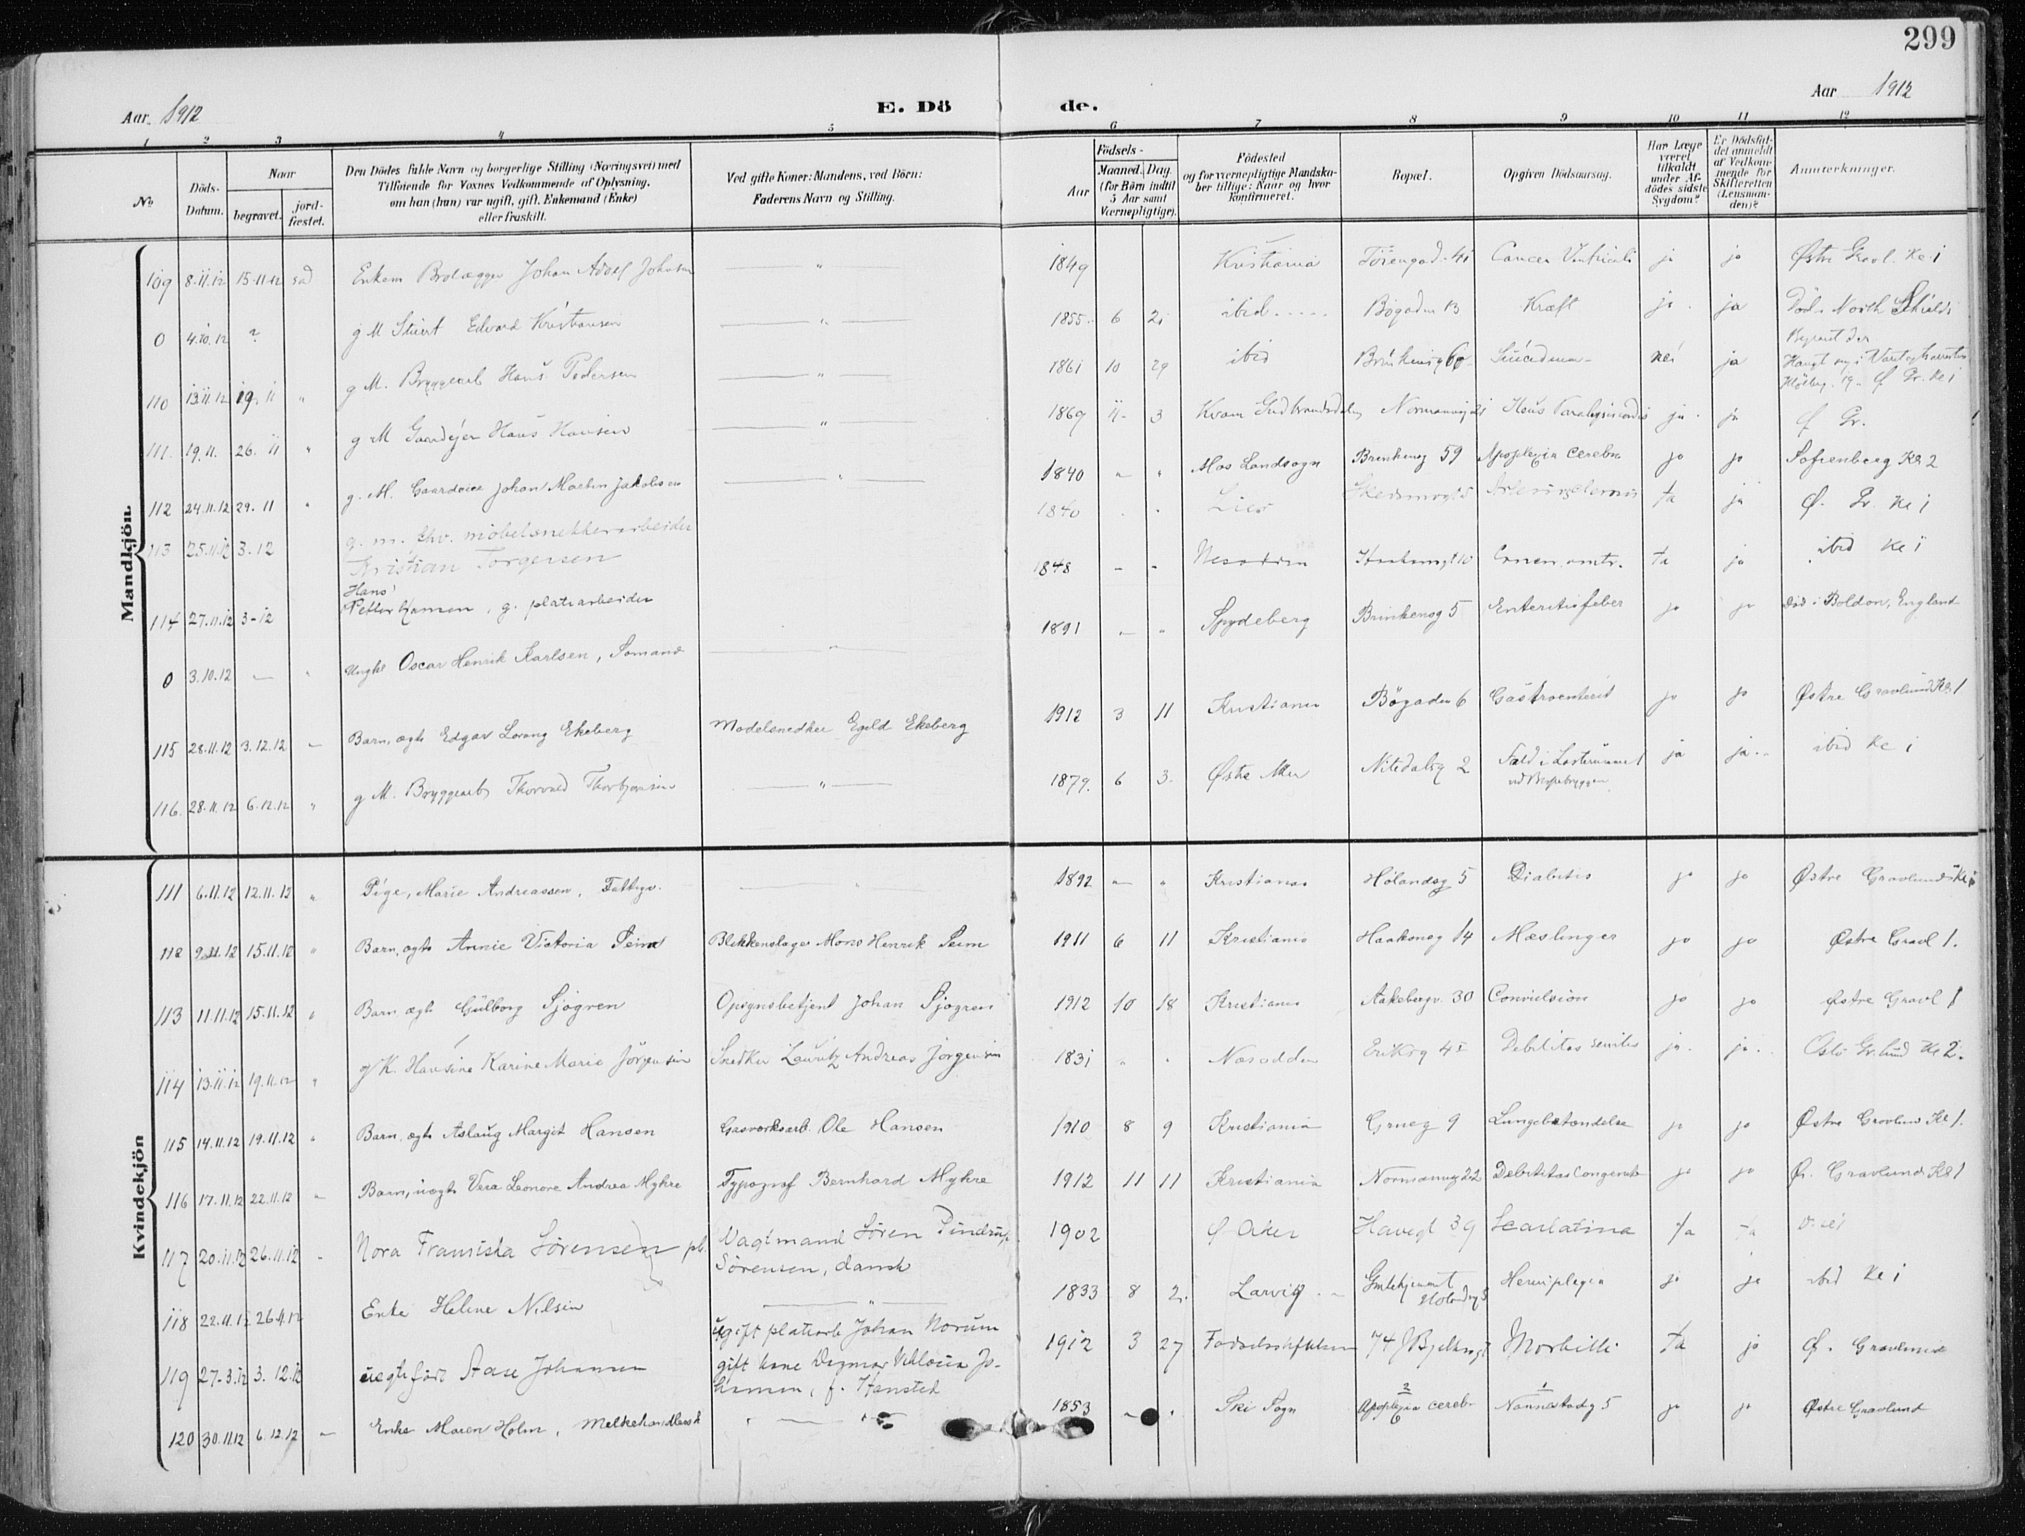 299
Aar 1912
E. Dö de.
Aar 1912
1 2 3 4 5 6 7 8 9 10 11 12
No
Döds-Datum.
Naar
begravet.
jord-fæstet.
Den Dödes fulde Navn og borgerlige Stilling (Næringsvei) med
Tilföiende for Voxnes Vedkommende af Oplysning,
om han (hun) var ugift, gift, Enkemand (Enke)
eller fraskilt.
Ved gifte Koner: Mandens, ved Börn:
Faderens Navn og Stilling.
Födsels-
Aar
Maaned. Dag.
(for Börn indtil
5 Aar samt
Værnepligtige).
Födested
og for værnepligtige Mandska-
ber tillige: Naar og hvor
konfirmeret.
Bopæl.
Opgiven Dödsaarsag.
Har Læge
været
tilkaldt
under Af-
dödes sidste
Sygdom?
Er Dödsfal-
det anmeldt
af Vedkom-
mende for
Skifteretten
(Lensman-
den)?
Anmærkninger.
Mandkjön.
109 8.11.12 15.11.12 Enkem Brolægger Johan Adolf Johnsen " 1849 Kristiania 41 Cancer Ventriculi ja ja Østre Gravl. Kr. 1
0 4.10.12 ? g M Stuert Edvard Kristiansen " 1855 6 21 ibid Bøgaden 13 Kræft ja ja Död i North Shields
110 13.11.12 19.11 " g M. Bryggearb Hans Pedersen " 1861 10 29 ibid nei ja
111. 19.11. 26.11 " g M Gaardejer Hans Hansen " 1869 11 3 Kvam Gudbrandsdalen ja ja Ø Gr.
112 24.11.12 29.11 " g. M. Gaardeier Johan Martin Jakobsen " 1840 " " Mos Landsogn Brinkensg 59 Apoplexia cerebri ja ja Sofienberg Kr 2
113 25.11.12 3.12 g. m. fhv. møbelsnekkerarbeider
Kristian Torgersen 1840 Lier ja ja Ø. Gr. Kr 1
114 27.11.12 3-12 Hans
Petter , g. pladearbeider 1848 Nesodden ja ja ibid Kr 1
0 3.10.12 — " Ungkl Oscar Henrik Karlsen, Sømand " 1891 " " Spydeberg Brinkensg 5 Enteritisfeber ja ja Död i Boldon, England
115 28.11.12 3.12.12 Barn, ægte Edgar Lorang Ekeberg Modelsnedker Ekeberg 1912 3 11 Kristiania Bøgaden 6 Gastroenterit ja ja Østre Gravlund Kr. 1
116. 28.11.12 6.12.12 " g M. Bryggearb Thorvald Thorbjørnsen " 1879. 6 3. Østre Aker Nitedalsg 2 Fald i Lasterummet
ved ja ja ibid Kr 1
Kvindekjön
111 6.11.12 12.11.12 " Pige, Marie Andreassen, Fattigv. " 1892 " " Kristiania Hølandsg 5 Diabetis ja ja Østre Gravlunds Kr
112 9.11.12 15.11.12 " Barn, ægte Annie Victoria Seim Blikkenslager Mons Henrik Seim 1911 6 11 Kristiania Haakonsg 14 Mæslinger ja ja Østre Gravl 1.
113 11.11.12 15.11.12 " Barn ægte Gülborg Sjøgren Opsynsbetjent Johan Sjøgren 1912 10 18 Kristiania Aakebergv. 30 Convulsion ja ja Østre Gravl 1
114 13.11.12 19.11.12 " g K. Hansine Karine Marie Jørgensen Snedker Lauritz Andreas Jørgensen 1831 " " Næsodden Eriksg 41 Debilitas senilis ja ja Oslo Gr.lund Kr 2.
115 14.11.12 19.11.12 " Barn, ægte Aslaug Margit Hansen Gasverksarb. Ole Hansen 1910 8 9 Kristiania Grueg 9 Lungebetændelse ja ja Østre Gravlund Kr 1.
116 17.11.12 22.11.12 " Barn, uægte Vera Leonore Andrea Myhre Typograf Bernhard Myhre 1912 11 11 Kristiania Normannsg 22 Debilitas congenita ja ja Ø. Gravlund Kr 1
117 20.11.12 26.11.12 Nora Franciska Sørensen Vagtmand Søren
Sørensen, dansk 1902 Ø Aker Havegt 39 Scarlatina ja ja
118 22.11.12 26.11.12 Enke Helene Nilsen " 1833 8 2. Larvig
Hølandsg 5 Hemiplegia ja ja ibid Kr 1
119 27.3.12 3.12.12 uegte født Aase Johansen ugift platearb Johan Norum
gift kone Dagmar Viktoria Jo-
hansen, f. Hansted 1912 3 27 Fødselsstiftelsen 74 Morbilli ja ja Ø. Gravlund
120 30.11.12 6.12.12 Enke Maren Holm, Melkehandlersk " " 1853 " Ski Sogn Apoplexia cerebri
2 Nannestadg 5
1 ja ja Østre Gravlund